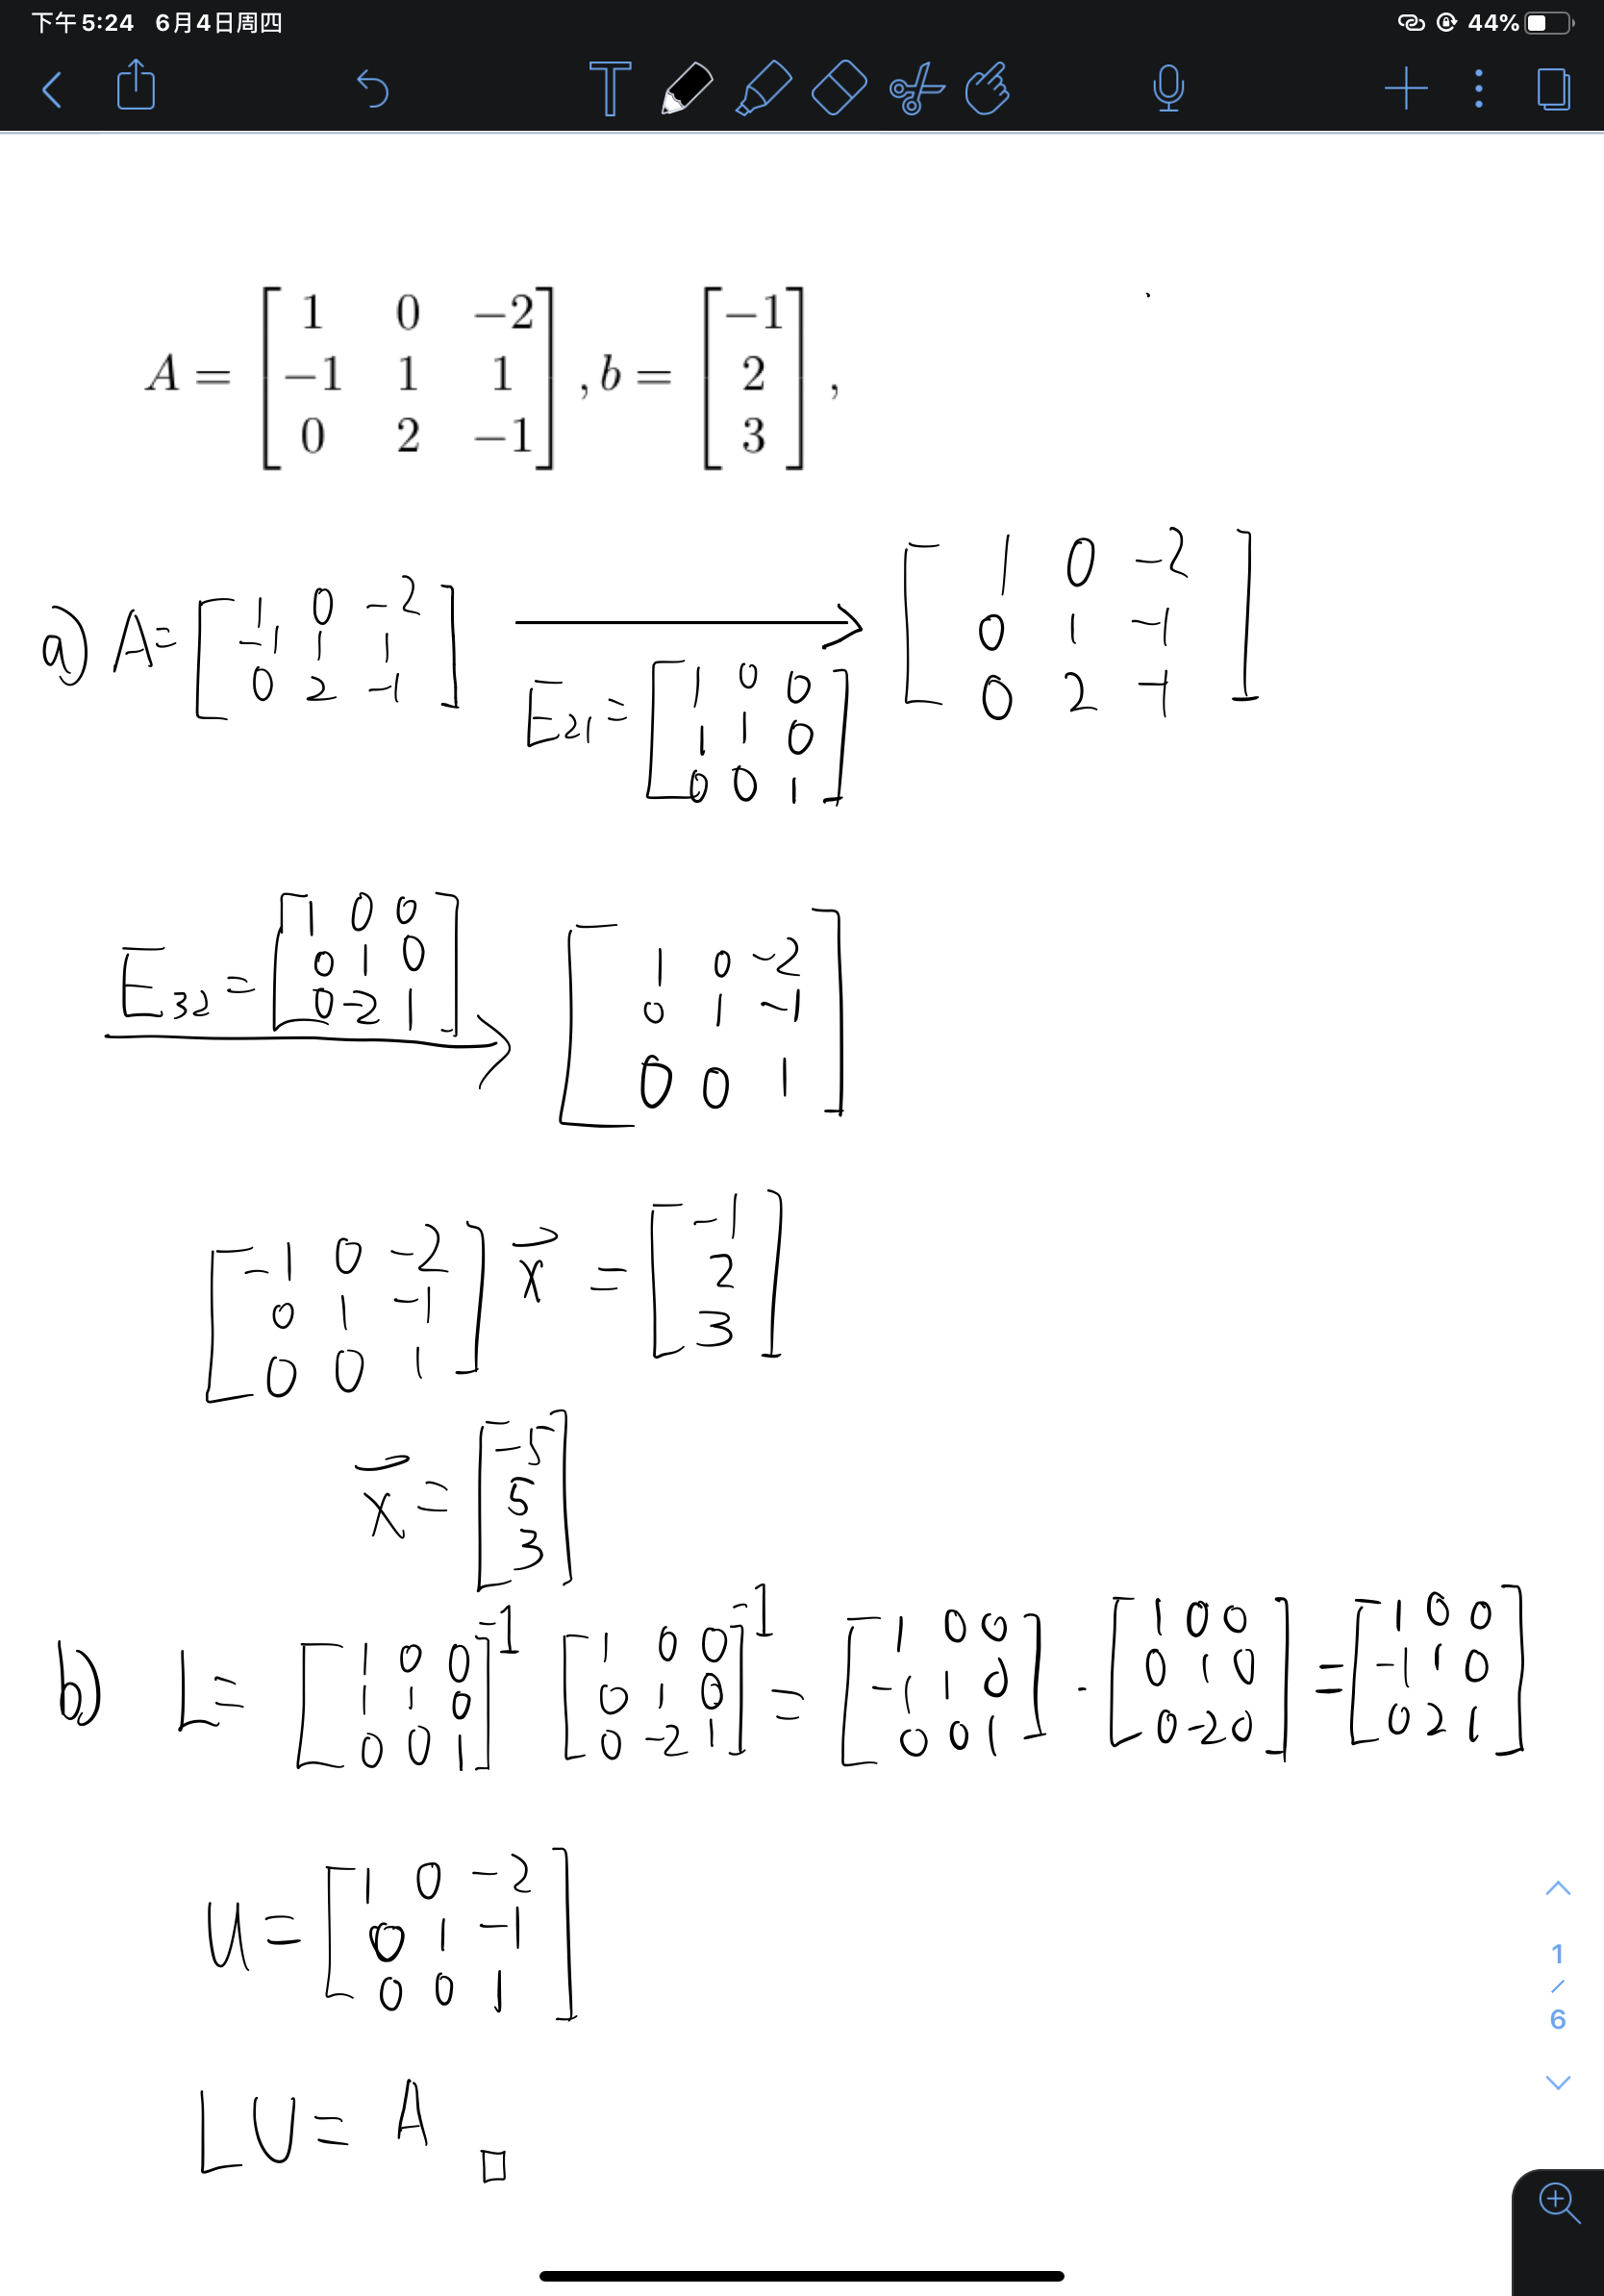 下午5:24 6月4日周四 44%
T
A = [ 1 0 −2 ; −1 1 1 ; 0 2 −1 ] , b = [ −1 ; 2 ; 3 ] ,
a) A= [ 1 0 -2 ; -1 1 1 ; 0 2 -1 ] → [ 1 0 -2 ; 0 1 -1 ; 0 2 -1 ]
E21= [ 1 0 0 ; 1 1 0 ; 0 0 1 ]
E32= [ 1 0 0 ; 0 1 0 ; 0 -2 1 ] → [ 1 0 -2 ; 0 1 -1 ; 0 0 1 ]
[ -1 0 -2 ; 0 1 -1 ; 0 0 1 ] x⃗ = [ -1 ; 2 ; 3 ]
x⃗ = [ -5 ; 5 ; 3 ]
b) L= [ 1 0 0 ; 1 1 0 ; 0 0 1 ]⁻¹ [ 1 0 0 ; 0 1 0 ; 0 -2 1 ]⁻¹ = [ 1 0 0 ; -1 1 0 ; 0 0 1 ] · [ 1 0 0 ; 0 1 0 ; 0 -2 0 ] = [ 1 0 0 ; -1 1 0 ; 0 2 1 ]
U= [ 1 0 -2 ; 0 1 -1 ; 0 0 1 ]
LU= A □
1
/
6